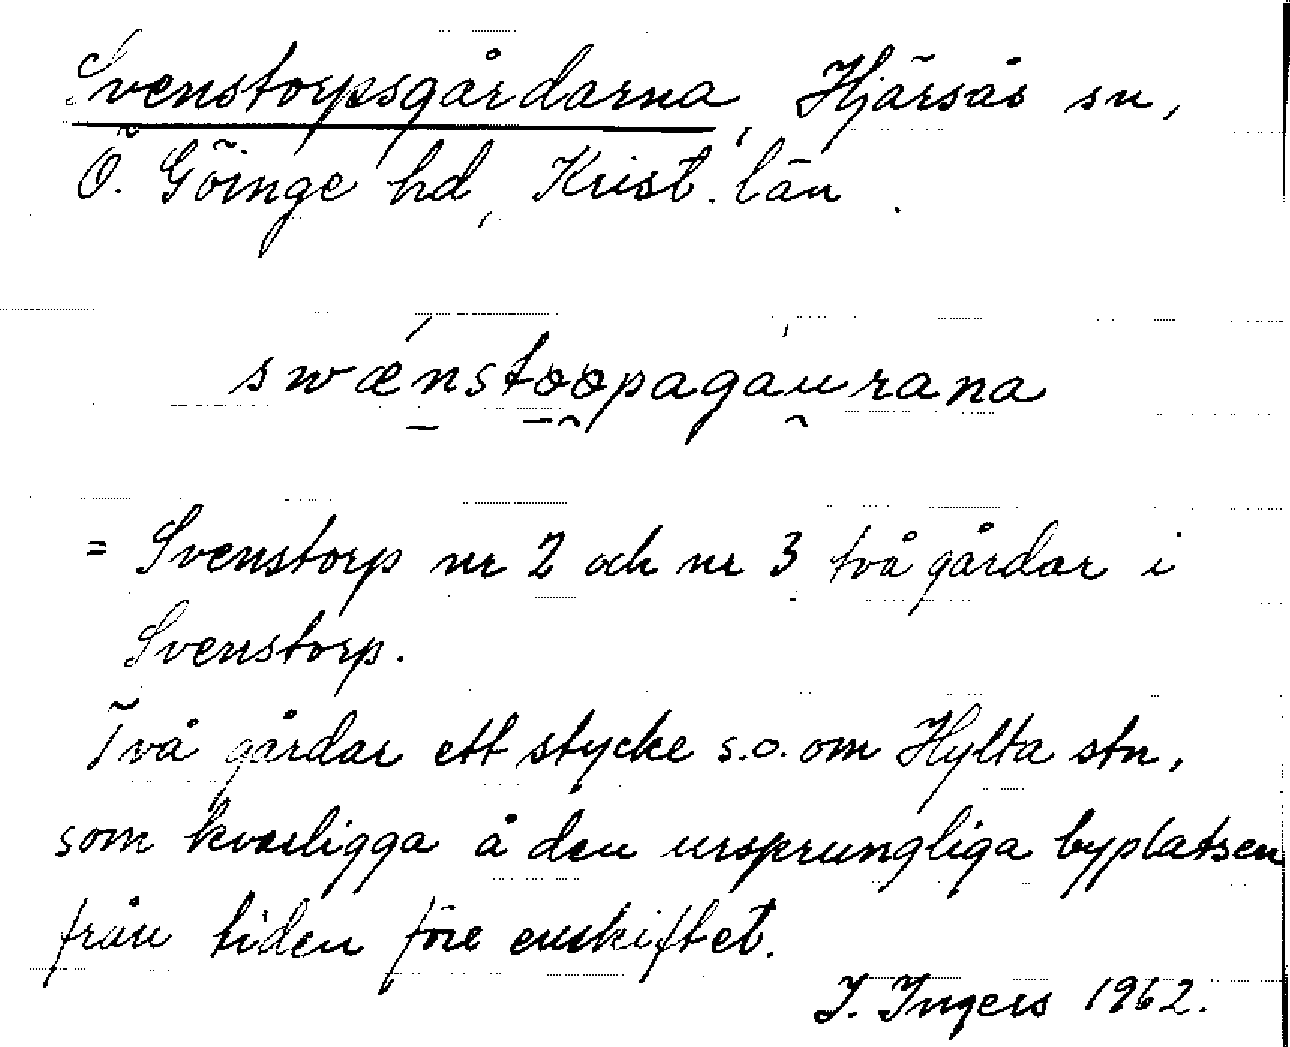 Svenstorpsgårdarna, Hjärsås sn,
Ö. Göinge hd, Krist. län.
swænstoopagaurana
= Svenstorp nr 2 och nr 3 två gårdar i
Svenstorp.
Två gårdar ett stycke s.o. om Hylta stn,
som kvarligga å den ursprungliga byplatsen
från tiden före enskiftet.
I. Ingers 1962.